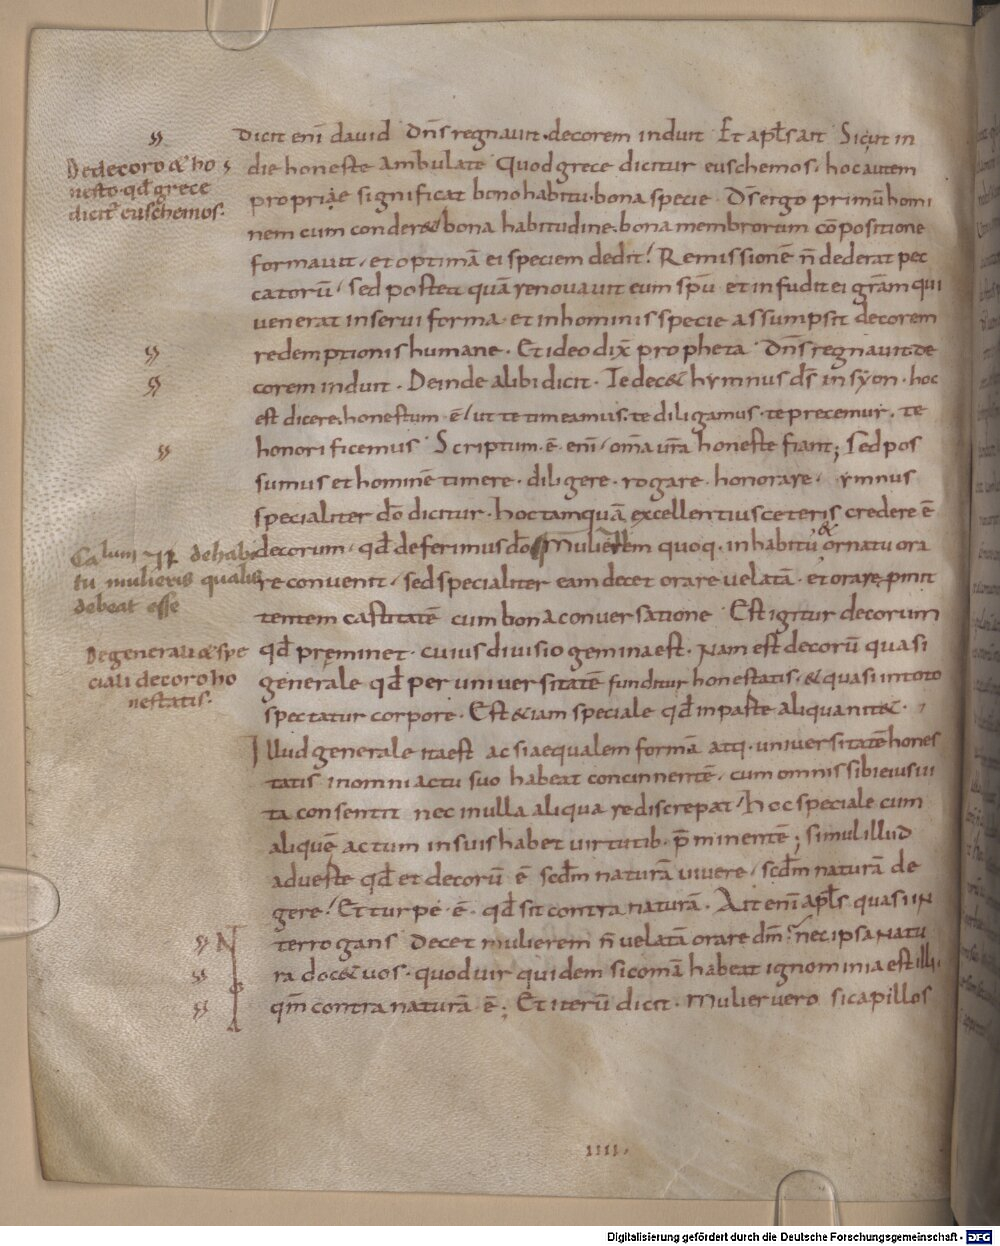 Dicit eni͞ david Dn͞s regnavit. decorem induit Et apl͞s ait Sicut in
die honeste ambulate Quod grece dicitur euschemos. hoc autem
propriae significat bono habitu. bona specie D͞s ergo primu͞ homi
nem cum conderet bona habitudine. bona membrorum co͞positione
formavit, et optima͞ ei speciem dedit. Remissione͞ n͞ dederat pec
catoru͞, sed postea qua͞ renovavit eum sp͞u et infudit ei gra͞m qui
venerat in servi forma. et in hominis specie assumpsit decorem
redemptionis humane. Et ideo dix͞ propheta Dn͞s regnavit de
corem induit. Deinde alibi dicit. Te dec& hymnus d͞s in syon. hoc
est dicere. honestum e͞, ut te timeamus. te diligamus. te precemur. te
honorificemus Scriptum. e͞. eni͞, om͞a vr͞a honeste fiant; Sed pos
sumus et homine͞ timere. diligere. rogare. honorare. ymnus
specialiter d͞o dicitur. hoc tamqua͞ excellentius ceteris credere e͞
decorum. qd͞ deferimus d͞o Mulierem quoq. in habitu & ornatu ora
re convenit, sed specialiter eam decet orare velata͞. et orare pmit
tentem castitate͞ cum bona conversatione Est igitur decorum
qd͞ preminet. cuius divisio gemina est. Nam est decoru͞ quasi
generale qd͞ per universitate͞ funditur honestatis. & quasi in toto
spectatur corpore. Est &iam speciale qd͞ in parte aliqua nit&.
Illud generale ita est ac si aequalem forma͞ atq. universitate͞ hones
tatis in omni actu suo habeat concinnente͞, cum omnis sibi eius vi
ta consentit nec in ulla aliqua re discrepat, hoc speciale cum
alique͞ actum in suis habet virtutib. p͞minente͞; simul illud
adverte qd͞ et decoru͞ e͞ scd͞m natura͞ vivere, scd͞m natura͞ de
gere. Et turpe. e͞. qd͞ sit contra natura͞. Ait eni͞ apl͞s quasi in
terrogans Decet mulierem n͞ velata͞ orare dm͞. nec ipsa natu
ra doc& vos. quod vir quidem si coma͞ habeat ignominia est illi.
qm͞ contra natura͞. e͞; Et iteru͞ dicit. Mulier vero si capillos
De decoro & ho
nesto. qd͞ grece
dicit͞ euschemos.
de habi
tu mulieris qualis
debeat esse
De generali & spe
ciali decoro ho
nestatis.
IIII.
Digitalisierung gefördert durch die Deutsche Forschungsgemeinschaft - DFG